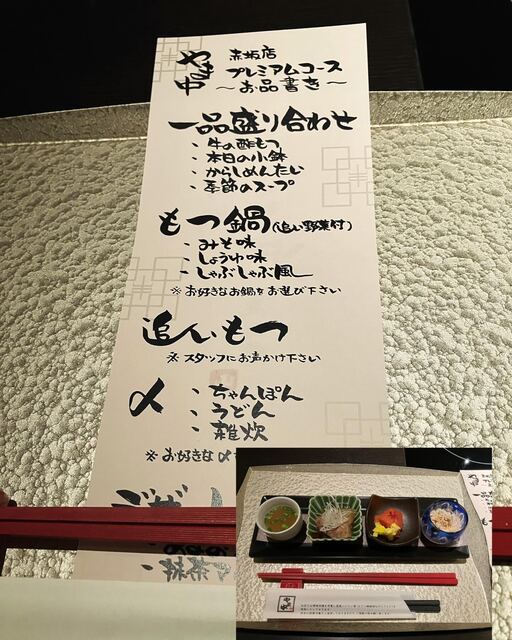 やま中 赤坂店
プレミアムコース
～お品書き～
一品盛り合わせ
・牛の酢もつ
・本日の小鉢
・からしめんたい
・季節のスープ
もつ鍋(追い野菜付)
・みそ味
・しょうゆ味
・しゃぶしゃぶ風
※お好きなお鍋をお選び下さい
追いもつ
※スタッフにお声かけ下さい
〆
・ちゃんぽん
・うどん
・雑炊
※お好きな〆
やま中